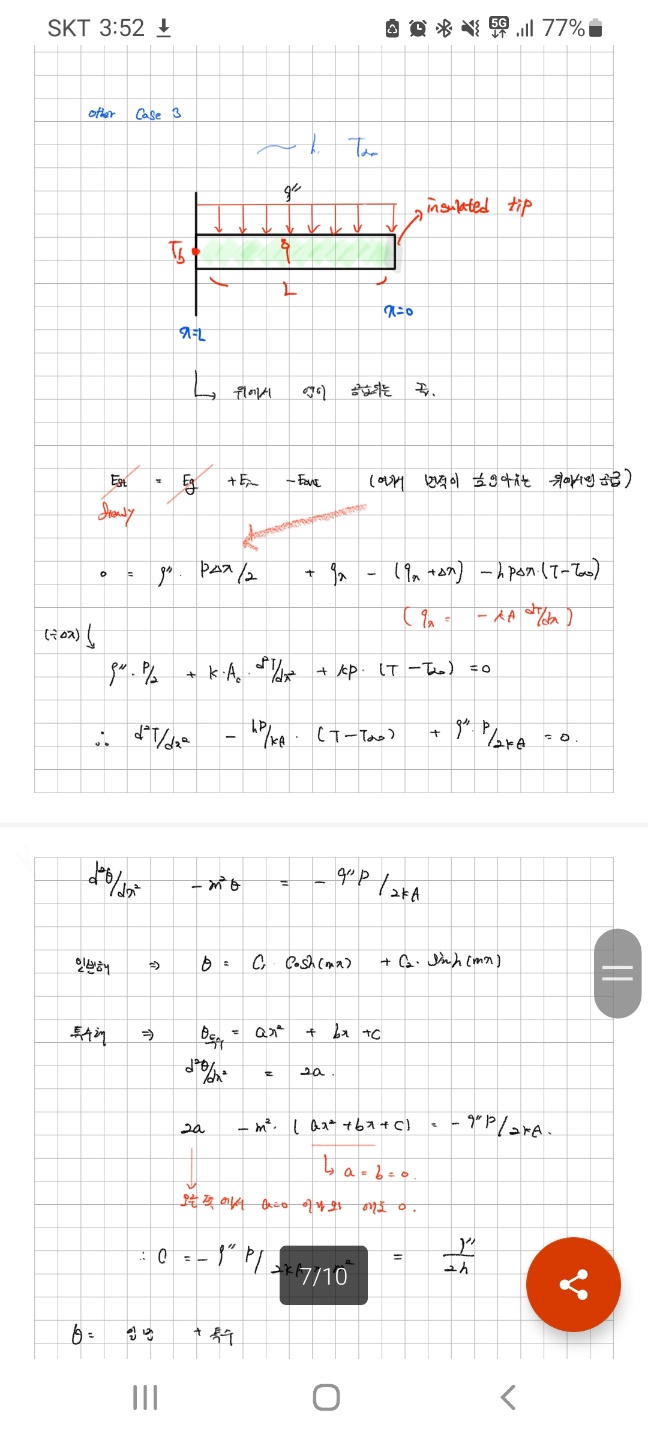 SKT 3:52 5G 77%
other Case 3
h. T∞
q"
insulated tip
Tb
L
x=0
x=L
위에서 열이 공급되는 꼴.
Est = Eg + Ein - Eout (여기 면적이 위에서만 공급)
steady
0 = q". PΔx/2 + qx - (qx+Δx) - hPΔx.(T-T∞)
(qx = -kA dT/dx)
(÷Δx)
q". P/2 + k.Ac. d²T/dx² + kP. (T-T∞) = 0
∴ d²T/dx² - hP/kA. (T-T∞) + q". P/2kA = 0.
d²θ/dx² - m²θ = - q"P/2kA
일반해 ⇒ θ = C₁ Cosh(mx) + C₂. Sinh(mx)
특수해 ⇒ θ특수 = ax² + bx + c
d²θ/dx² = 2a.
2a - m². (ax²+bx+c) = - q"P/2kA.
↳ a = b = 0.
a=0
∴ C = - q" P/ = q"/2h
7/10
θ = 일반 + 특수